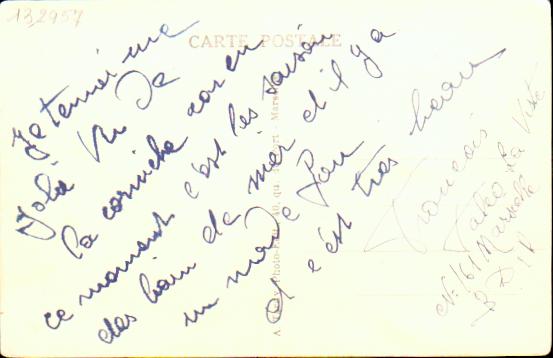 132957
CARTE POSTALE
Je tenvoi une
Jolie Vu De
la corniche car en
ce moment c'est les saison
des bain de mer et il y a
un monde Fou
et c'est tres beau
Francois
La Viste
N: 161 Marseille
B D R